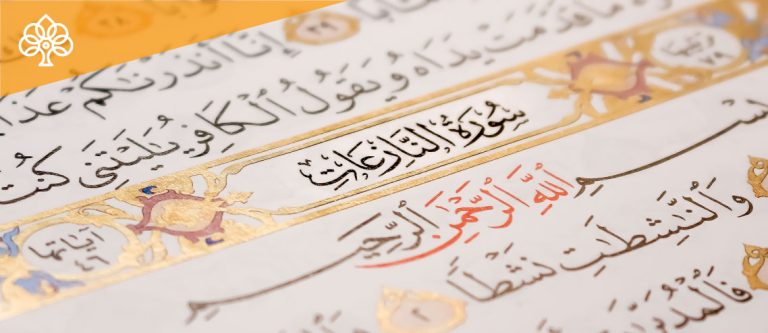 ٣٩ إِنَّا أَنذَرْنَٰكُمْ عَذَا
مَا قَدَّمَتْ يَدَاهُ وَيَقُولُ ٱلْكَافِرُ يَٰلَيْتَنِى كُنتُ
٧٩ سُورَةُ النَّازِعَاتِ آيَاتُهَا ٤٦
ـسْمِ ٱللَّهِ ٱلرَّحْمَٰنِ ٱلرَّحِيمِ
وَٱلنَّٰشِطَٰتِ نَشْطًا ٢
فَٱلْمُدَبِّرَ